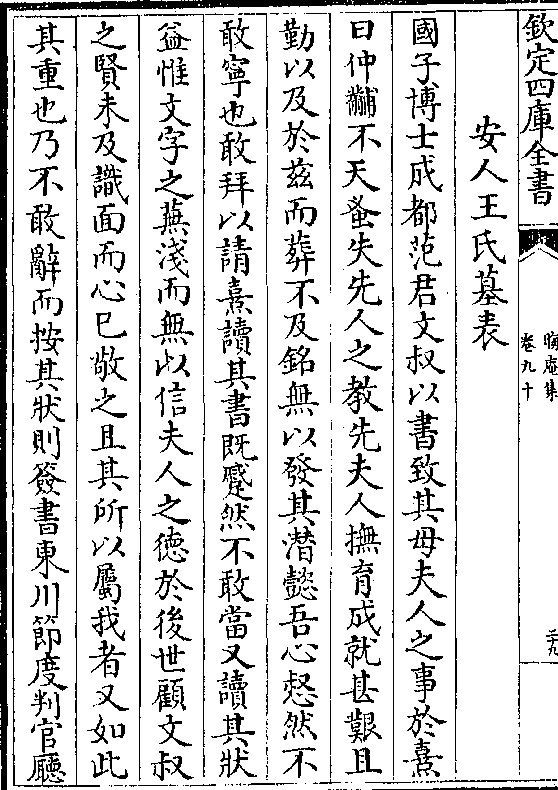 欽定四庫全書
晦庵集
卷九十
三十九
安人王氏墓表
國子博士成都范君文叔以書致其母夫人之事於熹
曰仲黼不天蚤失先人之教先夫人撫育成就甚艱且
勤以及於茲而葬不及銘無以發其潛懿吾心惄然不
敢寧也敢拜以請熹讀其書既蹙然不敢當又讀其狀
益惟文字之蕪淺而無以信夫人之德於後世顧文叔
之賢未及識面而心已敬之且其所以屬我者又如此
其重也乃不敢辭而按其狀則簽書東川節度判官廳